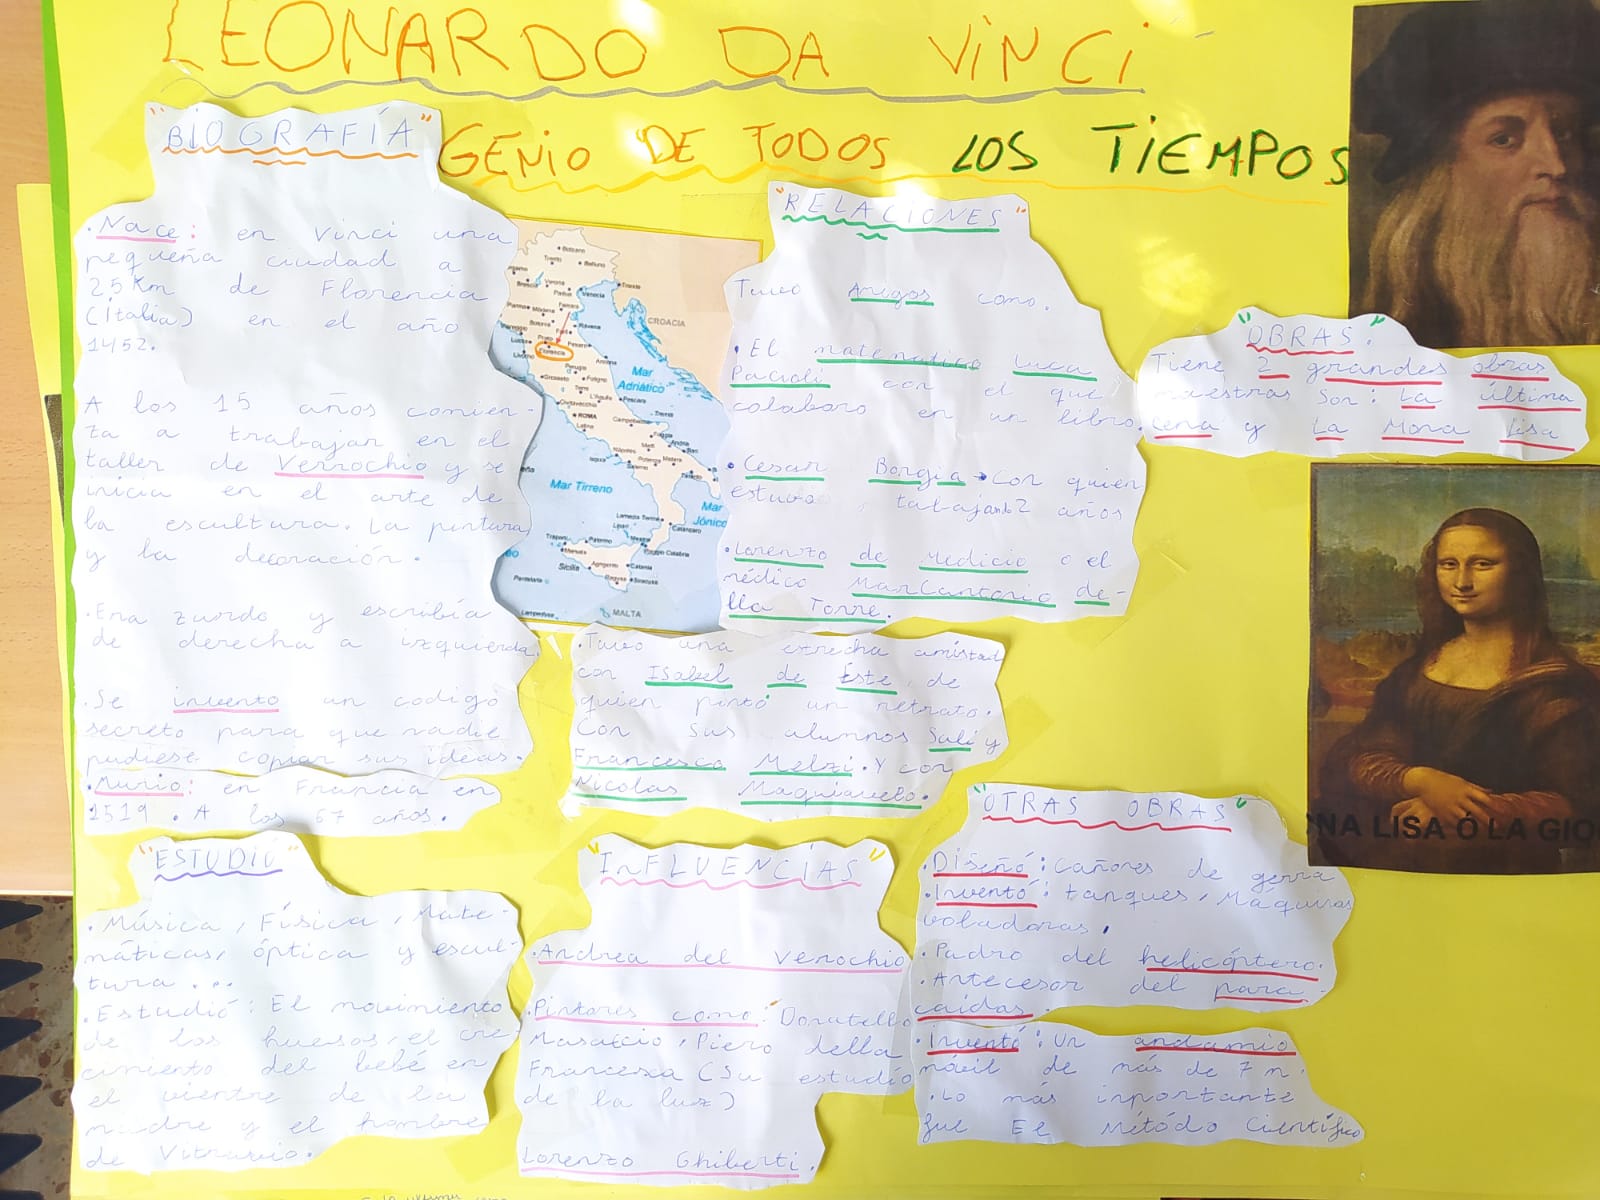 LEONARDO DA VINCI
GENIO DE TODOS LOS TIEMPOS
"BIOGRAFÍA"
·Nace: en Vinci una
pequeña ciudad a
25 Km de Florencia
(Italia) en el año
1452.
A los 15 años comien-
za a trabajar en el
taller de Verrochio y se
inicia en el arte de
la escultura. La pintura
y la decoración.
·Era zurdo y escribía
de derecha a izquierda.
·Se invento un codigo
secreto para que nadie
pudiese copiar sus ideas.
·Murio: en Francia en
1519. A los 67 años.
"ESTUDIÓ"
·Música, Física, Mate-
máticas, óptica y escul-
tura...
·Estudió: El movimiento
de los huesos, el cre-
cimiento del bebé en
el vientre de la
madre y el hombre
de Vitruvio.
CROACIA
Mar
Adriático
Mar Tirreno
Mar
Jónico
ROMA
Florencia
Venecia
Sicilia
MALTA
"RELACIONES"
Tuvo Amigos como.
·El matematico Luca
Pacioli con el que
colaboro en un libro.
·Cesar Borgia→Con quien
estuvo, tabajando 2 años
·Lorenzo de Medicio o el
médico MarCantonio de-
lla Torre.
·Tuvo una extrecha amistad
con ISabel de Este, de
quien pintó un retrato.
Con sus alumnos Salí y
Francesco Melzi. Y con
Nicolas Maquiavelo.
"InFLUENCÍAS"
·Andrea del Verrochio
·Pintores como: Donatello
Masaccio, Piero della
Francesca (Su estudió
de la luz)
Lorenzo Ghiberti.
"OBRAS".
Tiene 2 grandes obras
maestras Son: La última
cena y La Mona lisa
NA LISA Ó LA GIO
"OTRAS OBRAS"
·Diseñó: Cañones de gerra
·Inventó: tanques, Maquinas
voladoras.
·Padro del helicóptero.
·Antecesor del para-
caídas.
·Inventó: Un andamio
móvil de más de 7 m.
·Lo más inportante
fue El Métódo Científico